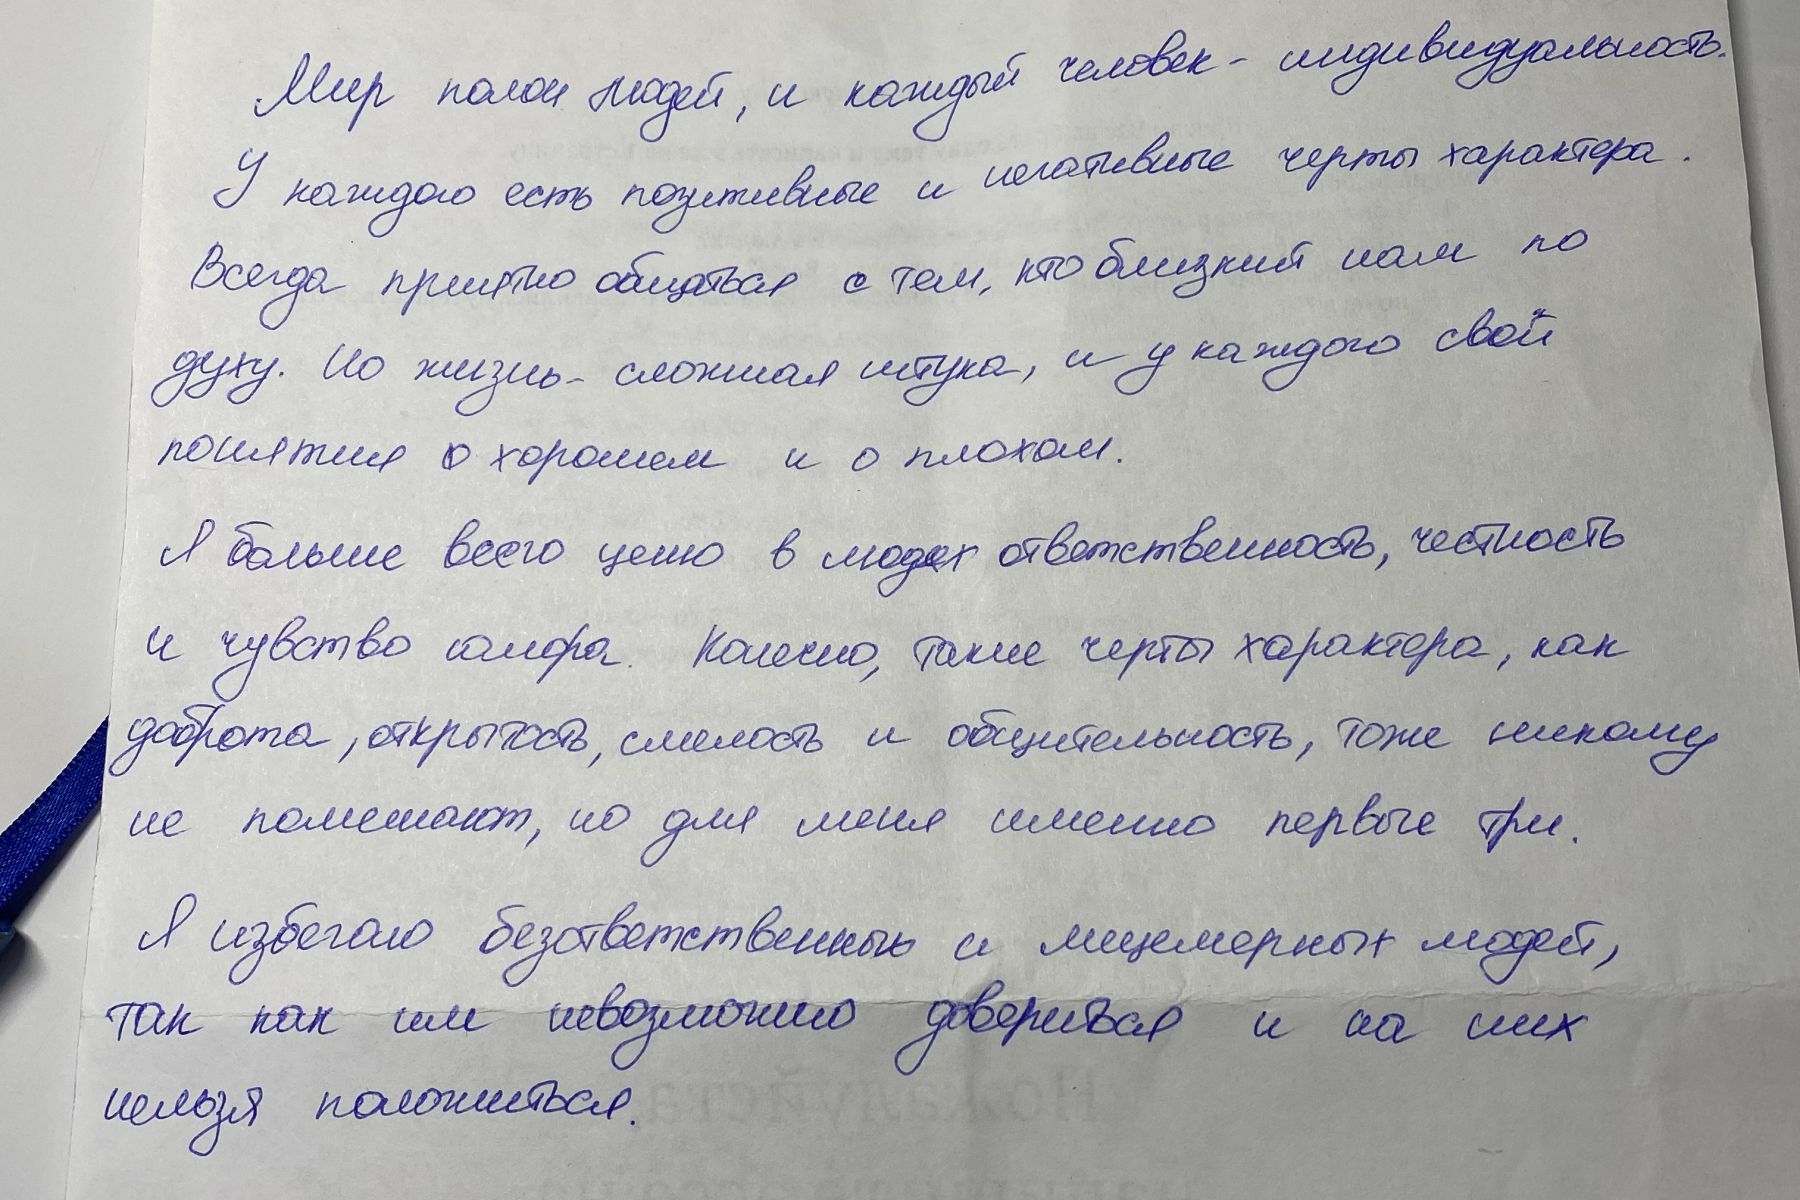 Мир полон людей, и каждый человек - индивидуальность.
У каждого есть позитивные и негативные черты характера.
Всегда приятно общаться с тем, кто близкий нам по
духу. Но жизнь - сложная штука, и у каждого свои
понятия о хорошем и о плохом.
Я больше всего ценю в людях ответственность, честность
и чувство юмора. Конечно, такие черты характера, как
доброта, открытость, смелость и общительность, тоже никому
не помешают, но для меня именно первые три.
Я избегаю безответственных и лицемерных людей,
так как им невозможно довериться и на них
нельзя положиться.